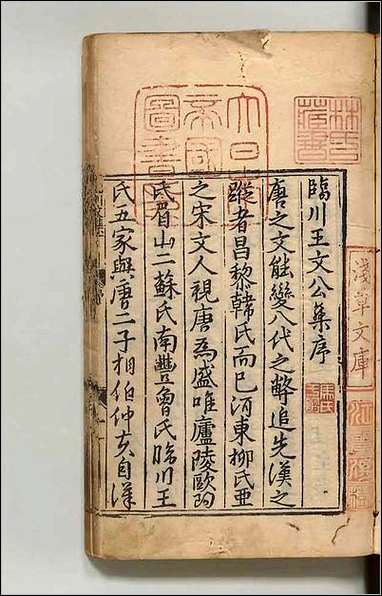 臨川王文公集序
唐之文能變八代之弊追先漢之
蹤者昌黎韓氏而已河東柳氏亞
之宋文人視唐為盛唯廬陵歐陽
氏眉山二蘇氏南豐曾氏臨川王
氏五家與唐二子相伯仲夫自漢
大日本
帝國
圖書
林氏
藏書
淺草文庫